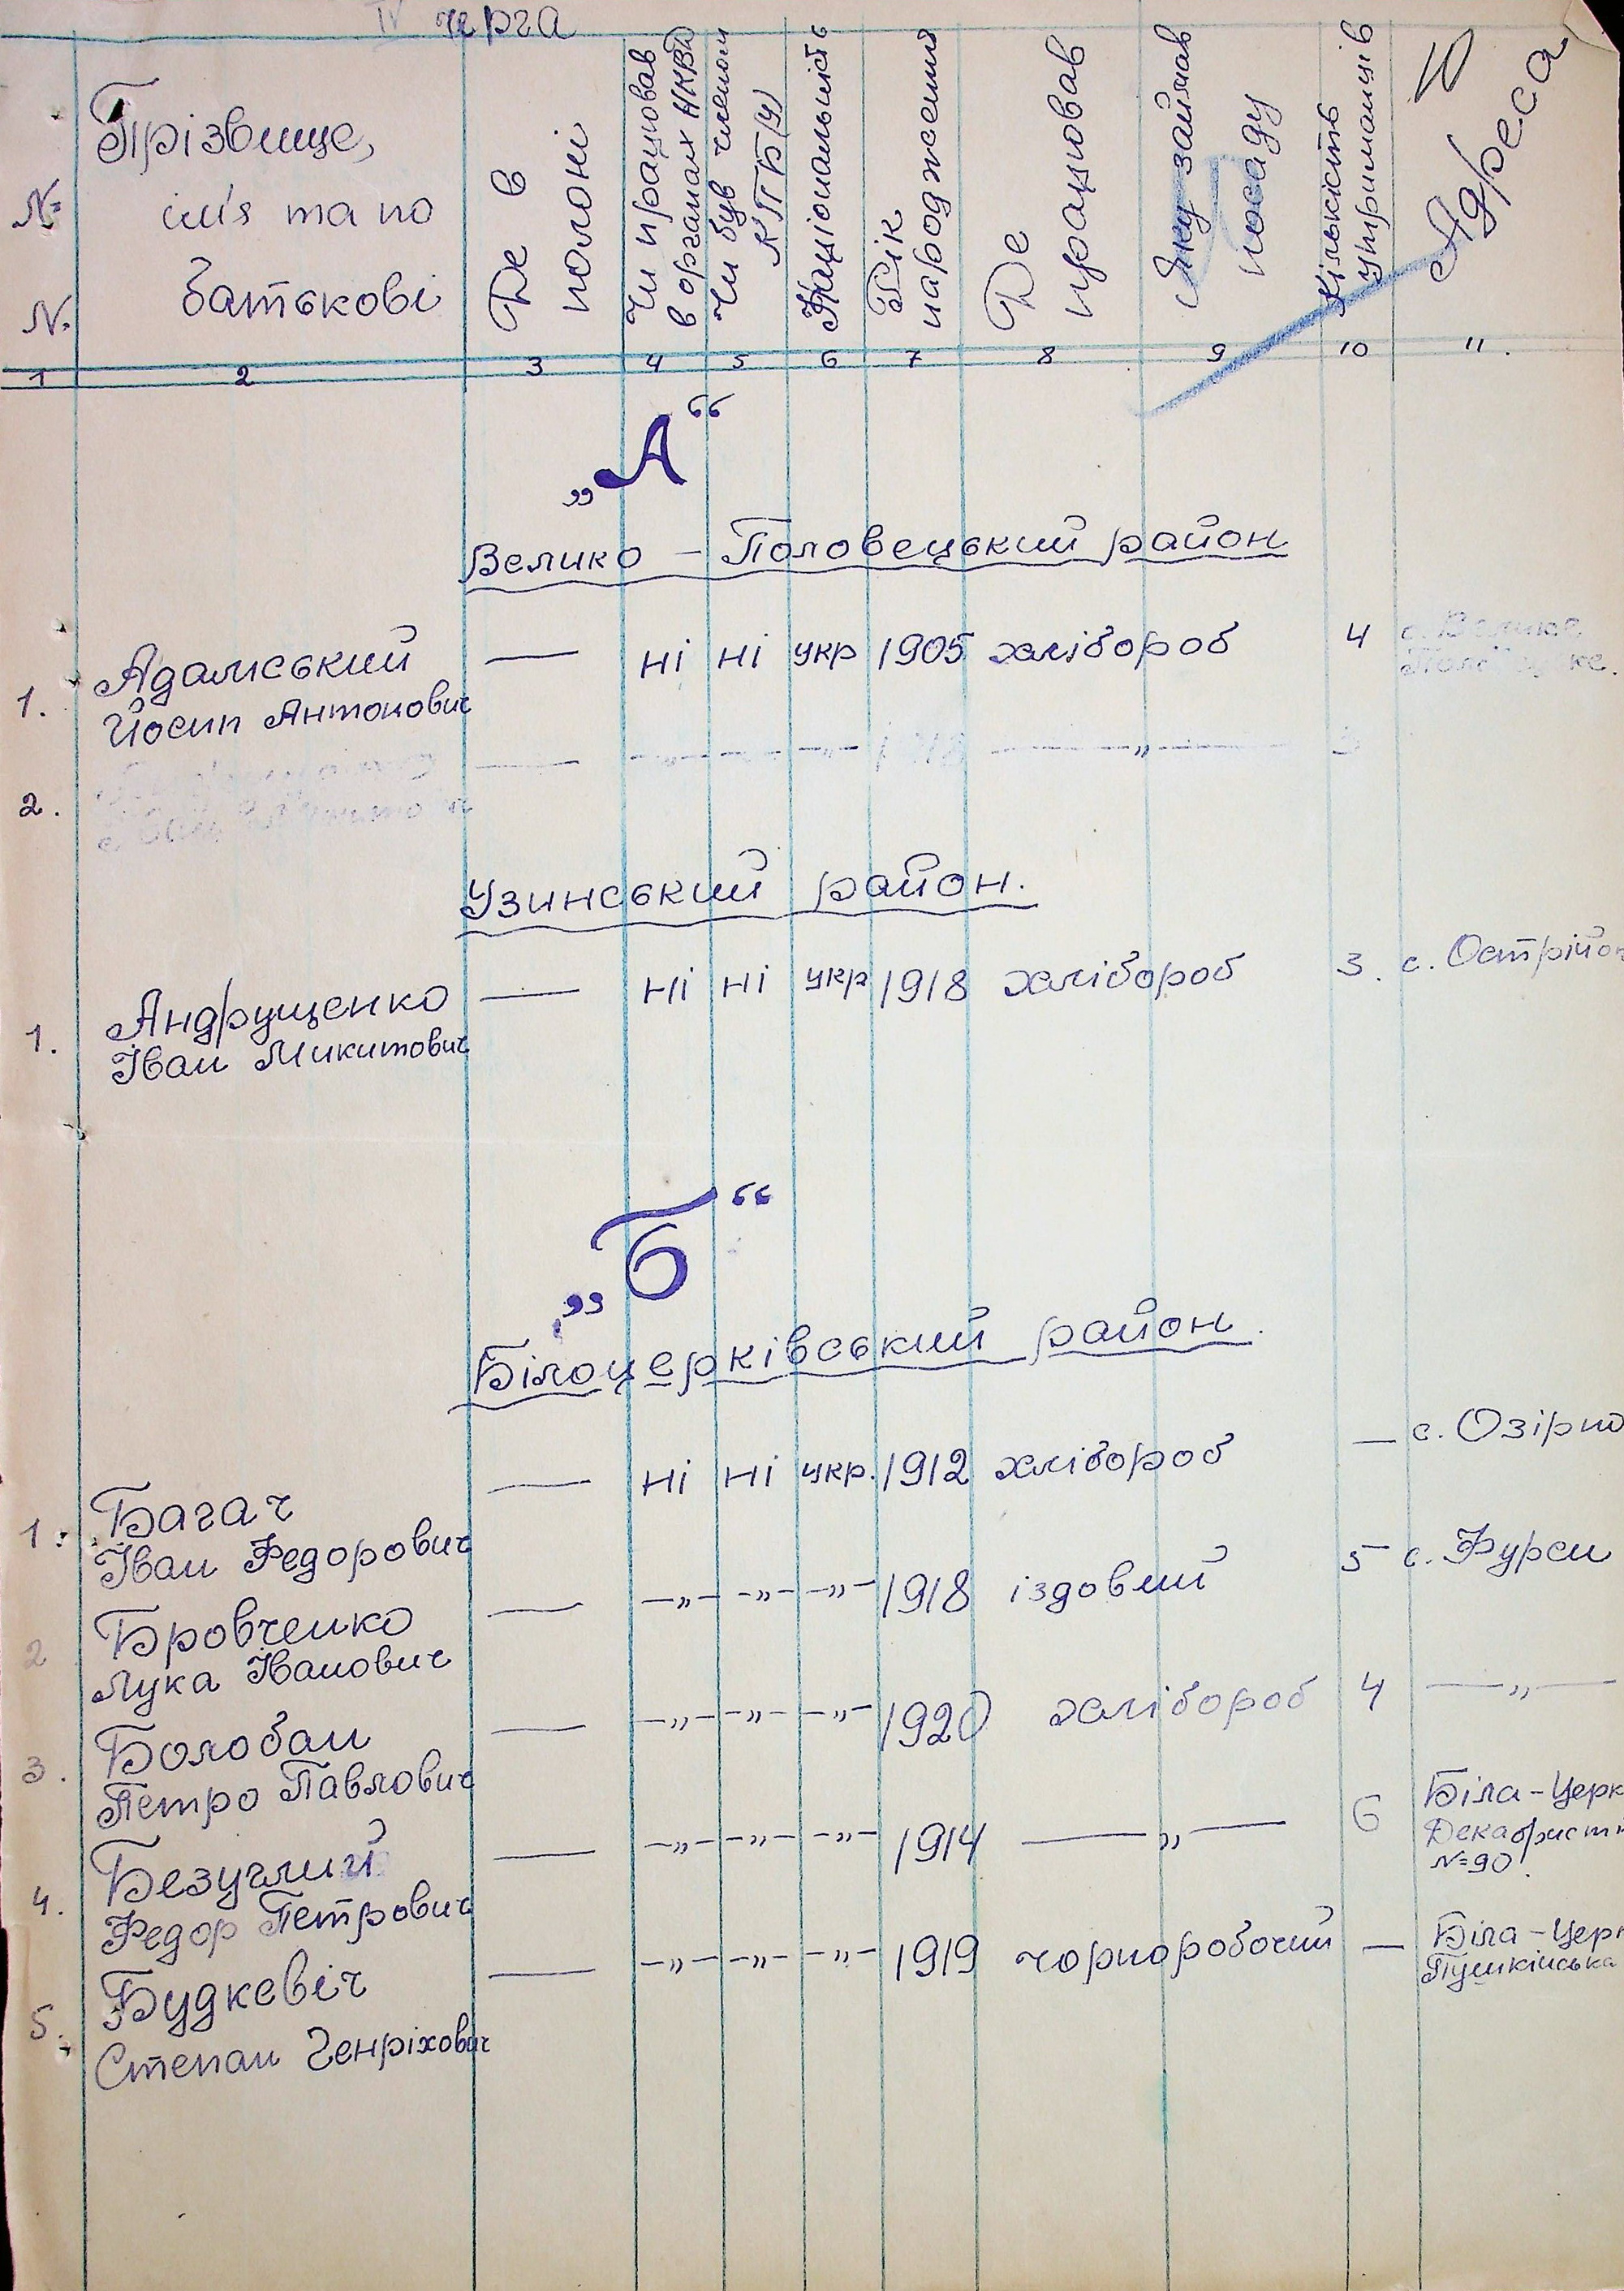 IV черга
№ №
Прізвище,
ім'я та по
батькові
Де в
полоні
Чи працював
в органах НКВД
Чи був членом
КПБ(У)
Національність
Рік
народження
Де
працював
Яку займав
посаду
Кількість
утриманців
Адреса
1 2 3 4 5 6 7 8 9 10 11.
„А“
Велико - Половецький район
1. Адамський — ні ні укр 1905 хлібороб 4 с. Велико
Йосип Антонович
2. — —„— —„— —„— —„— 3
Узинський район.
1. Андрущенко — ні ні укр 1918 хлібороб 3. с. Острійк
Іван Микитович
„Б“
Білоцерківський район.
1. Багач — ні ні укр. 1912 хлібороб — с. Озірно
Іван Федорович
2 Бровченко — —„— —„— —„— 1918 їздовий 5 с. Фурси
Лука Іванович
3. Болобан — —„— —„— —„— 1920 хлібороб 4 —„—
Петро Павлович
4. Безуглий — —„— —„— —„— 1914 —„— 6 Біла-Церк
Федор Петрович Декабрист
№ 90.
5. Будкевіч — —„— —„— —„— 1919 чорноробочий — Біла-Церк
Степан Генріхович Пушкінська